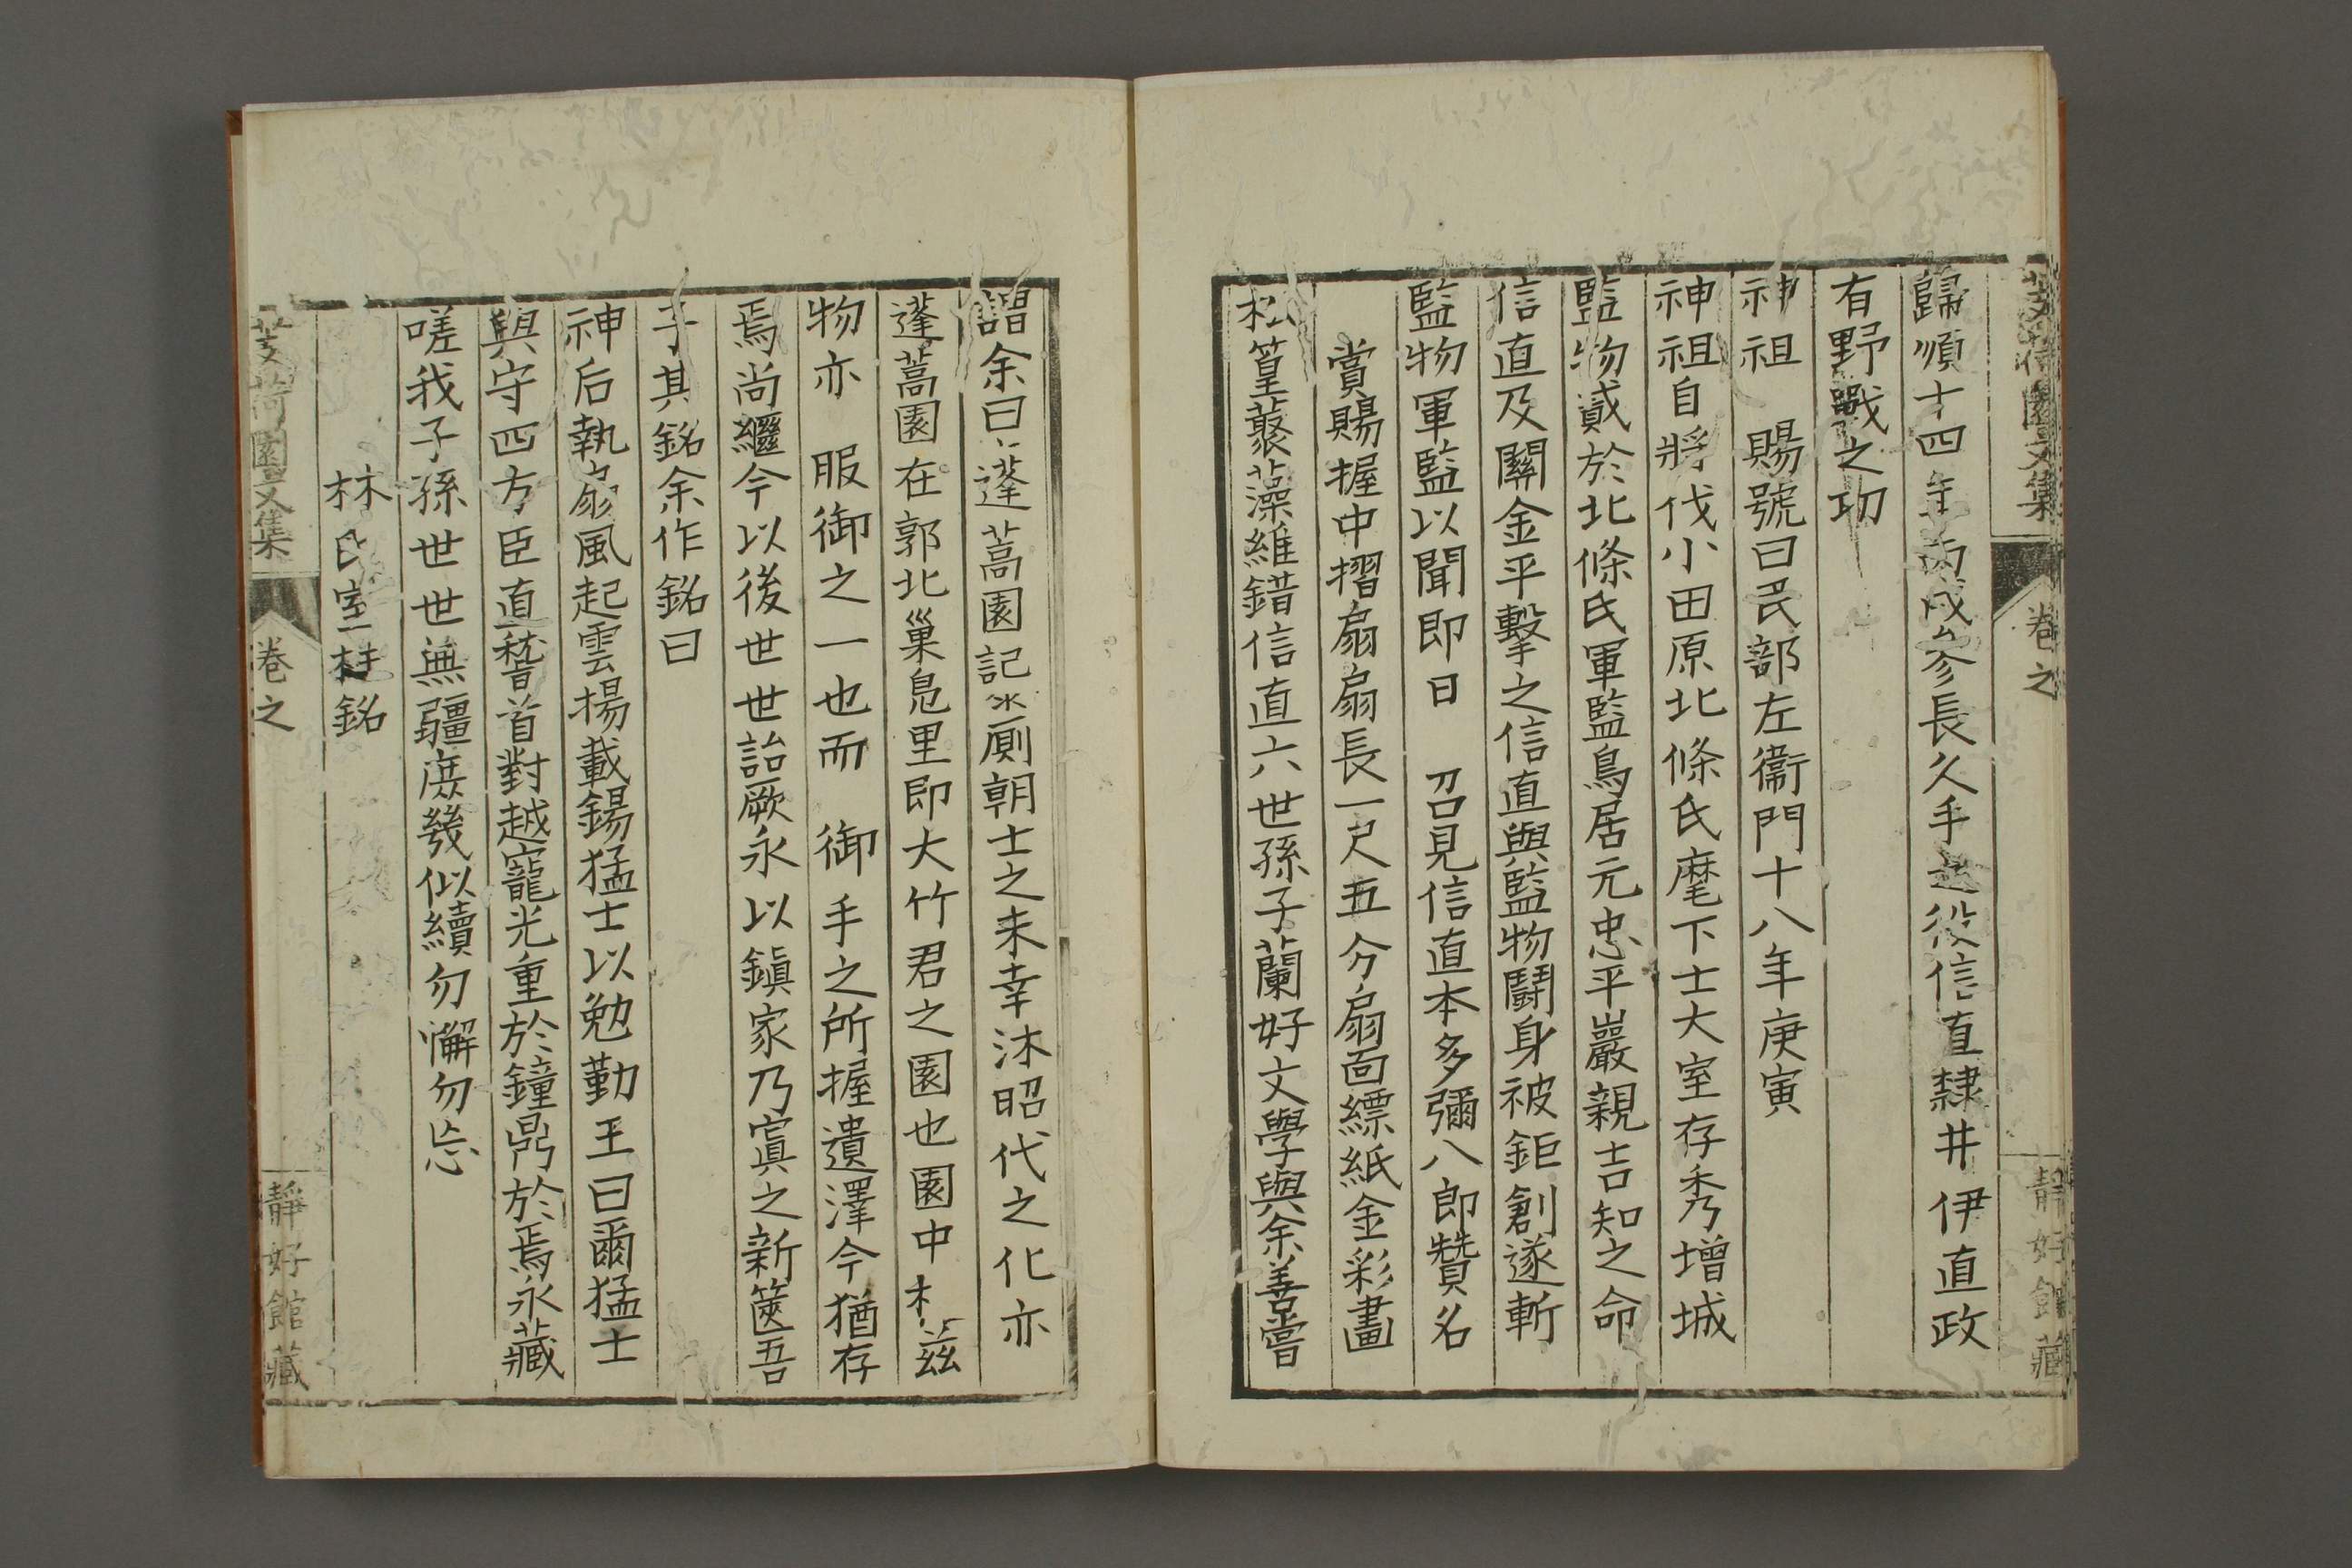 芰荷園文集 卷之 靜好館藏
歸順十四年丙戌參長久手之役信直隸井伊直政
有野戰之功
神祖 賜號曰民部左衞門十八年庚寅
神祖自將伐小田原北條氏麾下士大室存秀增城
監物貳於北條氏軍監鳥居元忠平巖親吉知之命
信直及關金平擊之信直與監物鬪身被鉅創遂斬
監物軍監以聞即日 召見信直本多彌八郎贊名
賞賜握中摺扇扇長一尺五分扇面縹紙金彩畫
松篁藂藻維錯信直六世孫子蘭好文學與余善嘗
謂余曰蓬蒿園記氷厠朝士之末幸沐昭代之化亦
蓬蒿園在郭北巢鳧里即大竹君之園也園中 茲
物亦 服御之一也而 御手之所握遺澤今猶存
焉尚繼今以後世世詒厥永以鎭家乃寘之新篋吾
子其銘余作銘曰
神后執扇風起雲揚載錫猛士以勉勤王曰爾猛士
與守四方臣直稽首對越寵光重於鐘鼎於焉永藏
嗟我子孫世世無疆庶幾似續勿懈勿忘
林氏室柱銘
芰荷園文集 卷之 靜好館藏